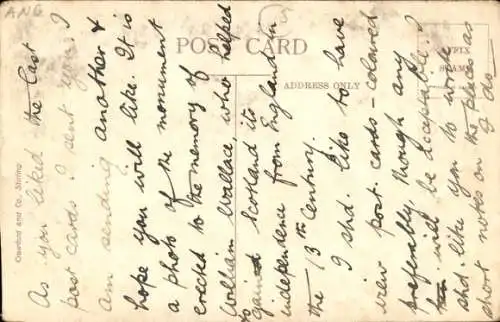 ANG
POST CARD
ADDRESS ONLY
AFFIX
STAMP
Crawford and Co., Stirling
As you liked the last
post cards I sent you, I
am sending another &
hope you will like. It is
a photo of the monument
erected to the memory of
William Wallace who helped
to gain Scotland its
independence from England in
the 13th Century.
I shd. like to have
view post cards - colored
preferably, though any
will be acceptable. I
shd. like you to write
short notes on the places as
I do -